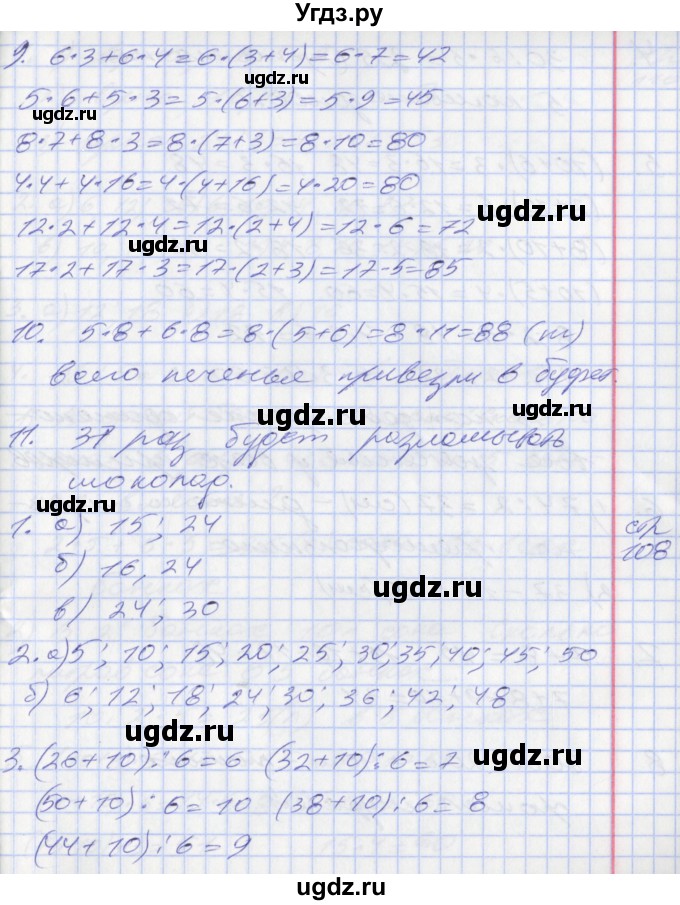 Угдз.ру
9. 6·3+6·4=6·(3+4)=6·7=42
ugdz.ru ugdz.ru
5·6+5·3=5·(6+3)=5·9=45
8·7+8·3=8·(7+3)=8·10=80
ugdz.ru
4·4+4·16=4·(4+16)=4·20=80
ugdz.ru
12·2+12·4=12·(2+4)=12·6=72
ugdz.ru
17·2+17·3=17·(2+3)=17·5=85
10. 5·8+6·8=8·(5+6)=8·11=88 (п)
всего печенья привезли в буфет.
ugdz.ru ugdz.ru
11. 31 раз будет разломывать
шоколад.
ugdz.ru
1. а) 15; 24
стр
108
б) 16, 24
ugdz.ru
в) 24; 30
2. а) 5; 10; 15; 20; 25; 30; 35; 40; 45; 50
б) 6; 12; 18; 24; 30; 36; 42; 48
ugdz.ru ugdz.ru
3. (26+10):6=6 (32+10):6=7
(50+10):6=10 (38+10):6=8
ugdz.ru
(44+10):6=9
ugdz.ru